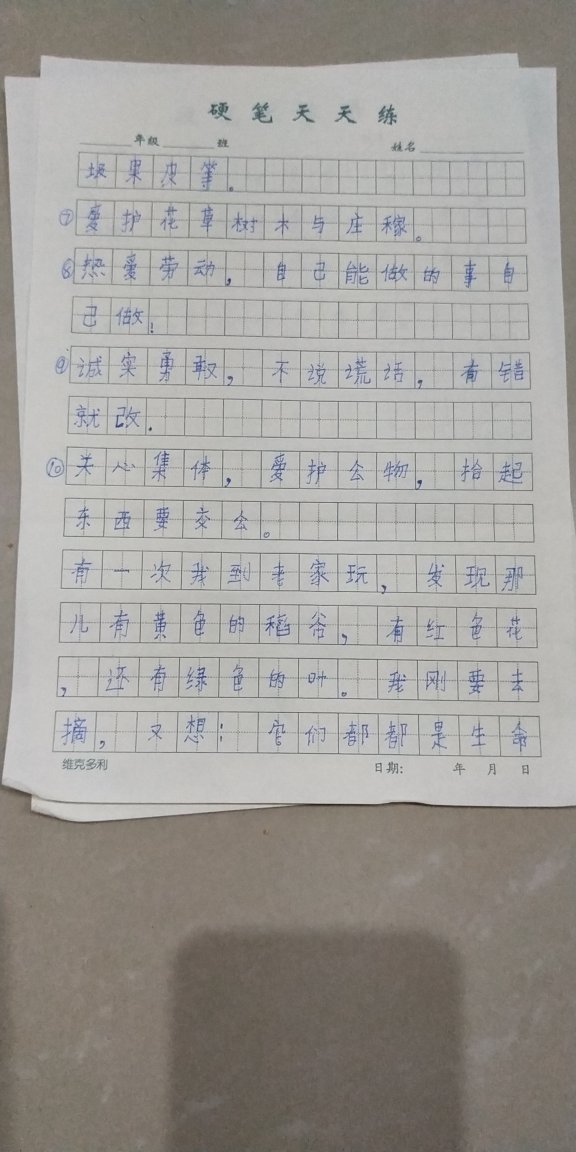 硬笔天天练
年级 班 姓名
圾果皮等。
⑦爱护花草树木与庄稼。
⑧热爱劳动，自己能做的事自
己做！
⑨诚实勇敢，不说谎话，有错
就改．
⑩关心集体，爱护公物，拾起
东西要交公。
有一次我到老家玩，发现那
儿有黄色的稻谷，有红色花
，还有绿色的叶。我刚要去
摘，又想：它们都都是生命
维克多利 日期： 年 月 日